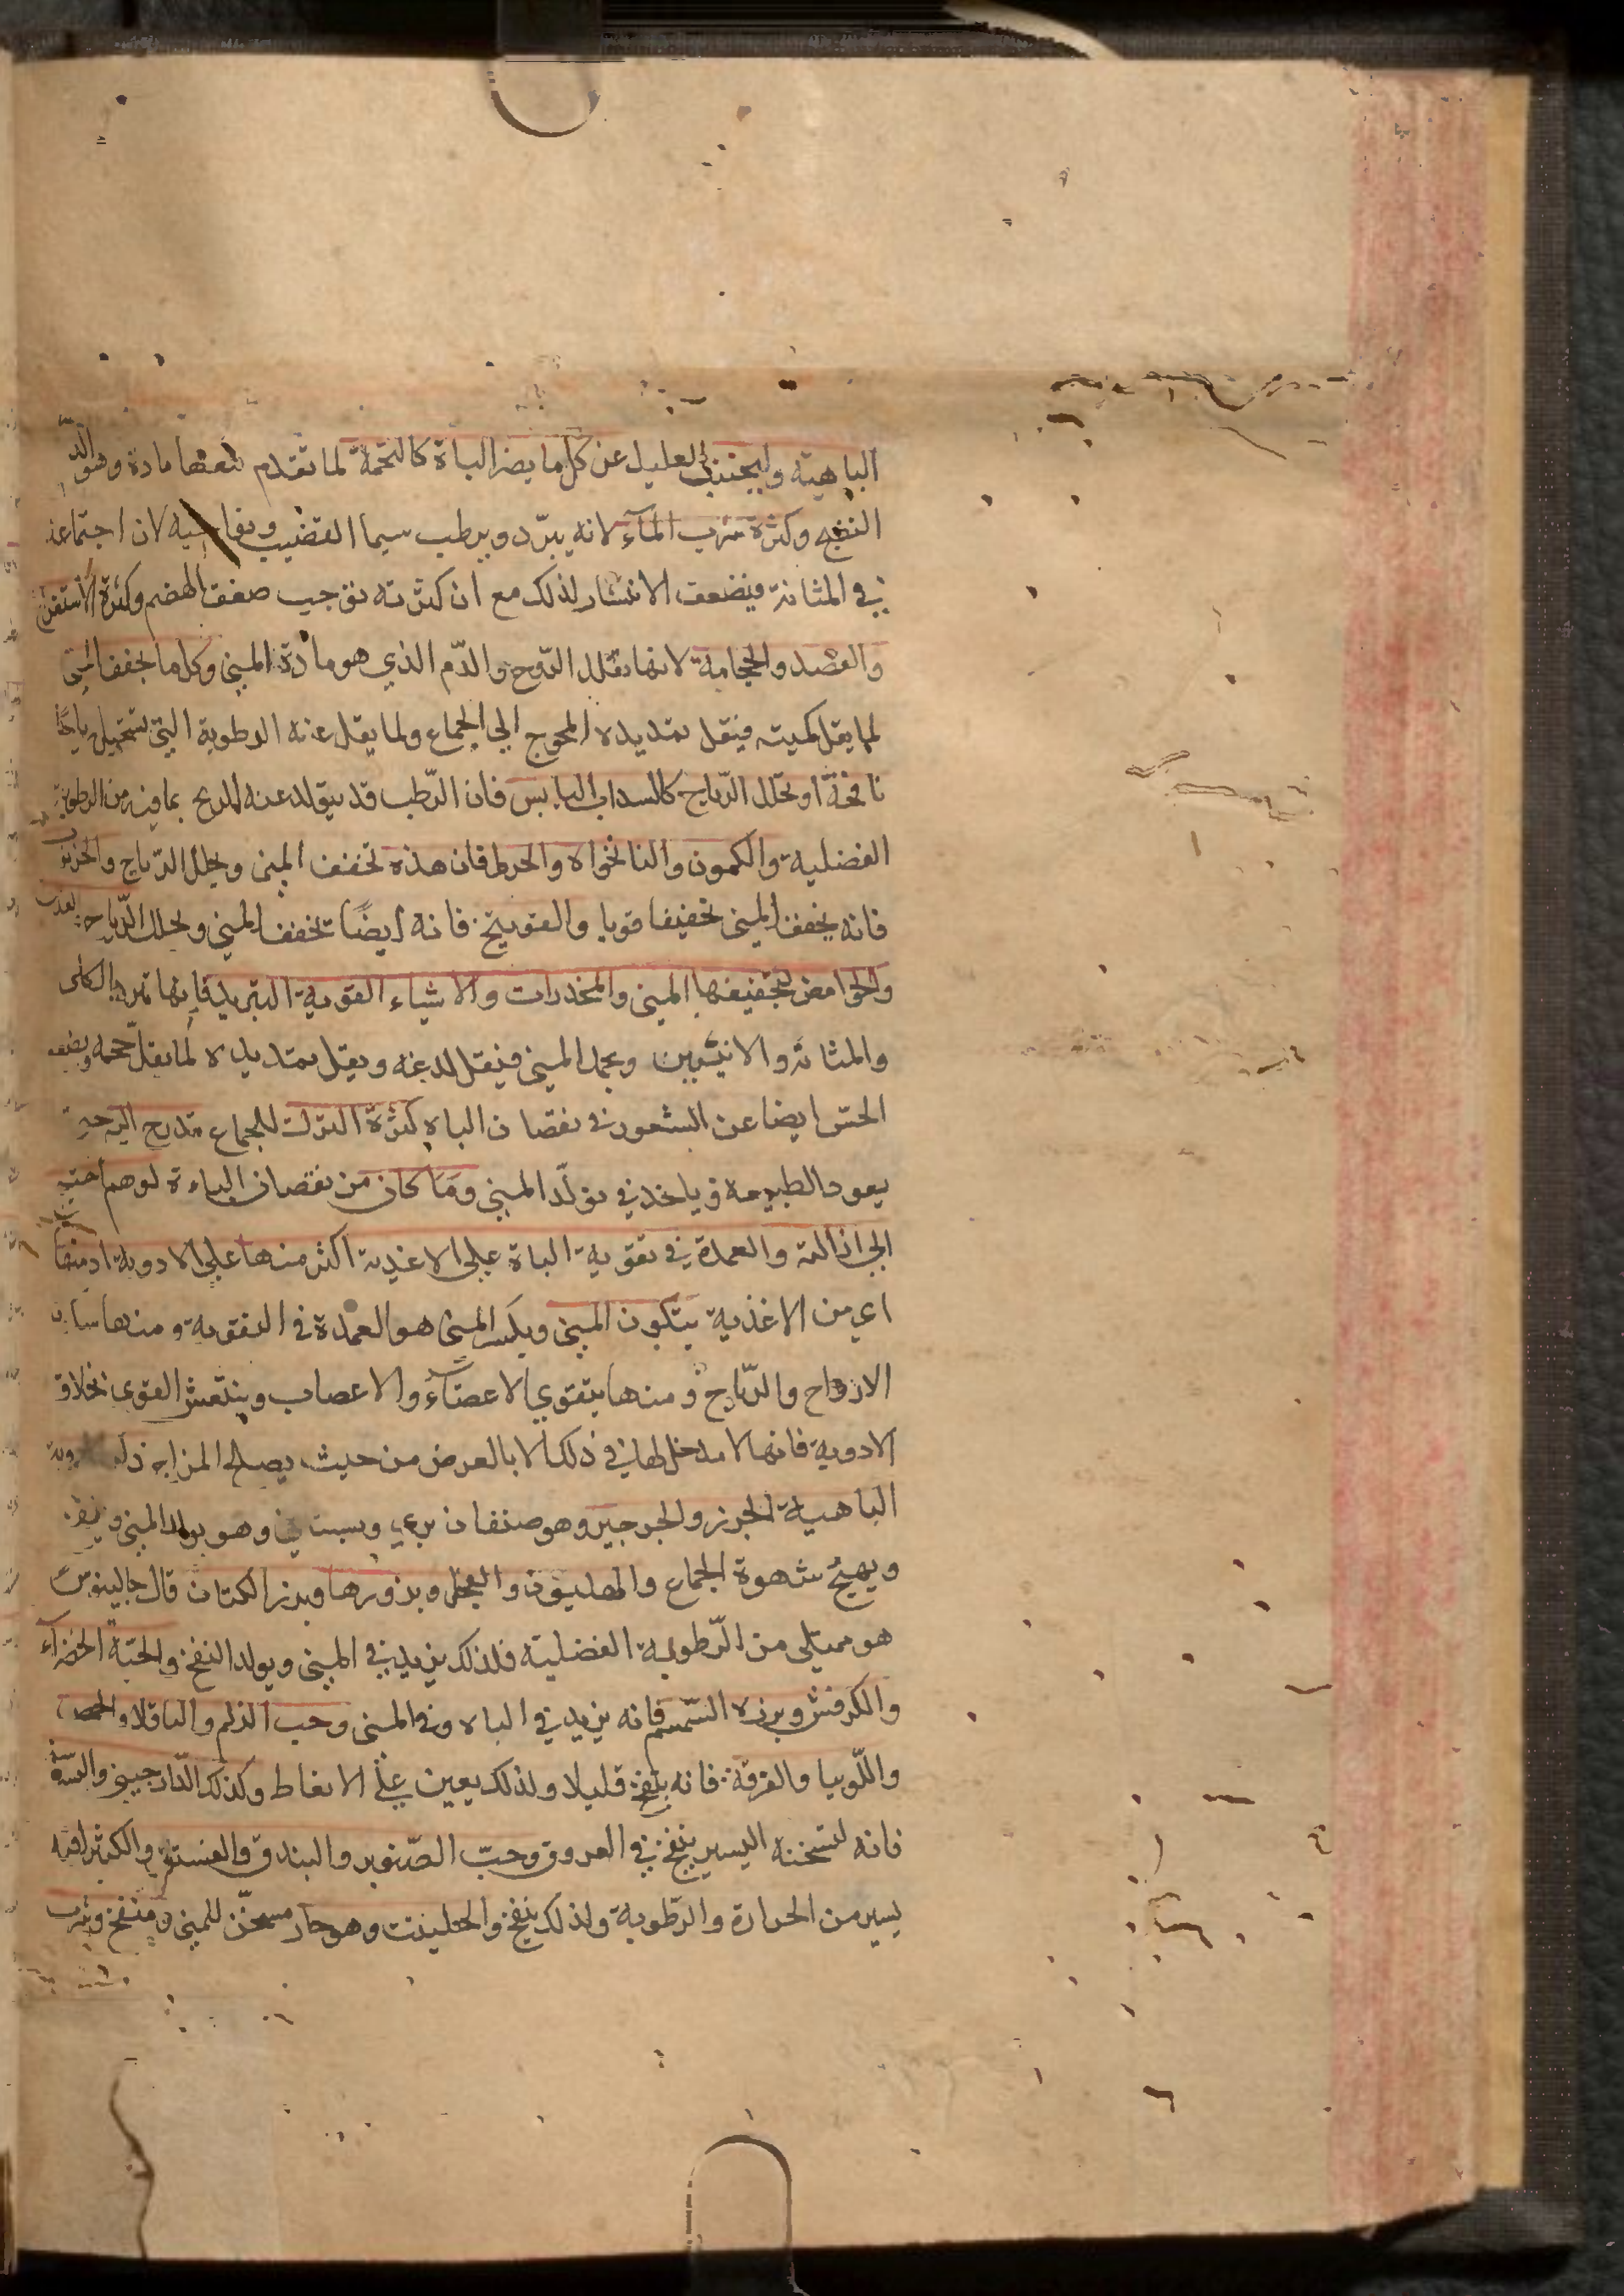 الباهية وليجتنب العليل عن كل ما يضر الباة كالتخمة لما تقدم مادة وهو الدم
النضج وكثرة شرب الماء لانه يبرد ويرطب سيما القضيب ونواحيه لان اجتماعه
في المثانة فيضعف الانتشار لذلك مع ان كثرته توجب ضعف الهضم وكثرة الاستفراغ
والفصد والحجامة لانها تقلل الروح والدم الذي هو مادة المني وكل ما يجفف المني
لما يقل كميته فيقل تمديده المحوج الي الجماع ولما يقل عنه الرطوبة التي تستحيل رياحا
نافخة او يحلل الرياح كالسداب اليابس فان الرطب قد يتولد عنه الريح بما فيه من الرطوبة
الفضلية والكمون والنانخواه والحرمل فان هذه تجفف المني ويحلل الرياح والخرنوب
فانه يجفف المني تجفيفا قويا والفوتنج فانه ايضا تجفف المني ويحلل الرياح
والحوامض لتجفيفها المني والمخدرات والاشياء القوية التبريد فانها تبرد الكلى
والمثانة والانثيين ويجمد المني فيقل لدغه ويقل تمديده لما يقل حجمه ويضعف
الحس ايضا عن الشعور في نقصان الباه كثرة الترك للجماع تدرج اليه حتى
يعود الطبيعة و ياخذ في تولد المني وما كان من نقصان الباءة لوهم احتيج
الي ازالته والعمدة في تقوية الباة علي الاغذية اكثر منها علي الادوية اذ منها
اي من الاغذية يتكون المني ويكثر المني هو العمدة في التقوية ومنها
الارواح والرياح ومنها يتقوي الاعضاء والاعصاب وينتعش القوى بخلاف
الادوية فانها لا مدخل لها في ذلك الا بالعرض من حيث يصلح المزاج
الباهية الجزر والجرجير وهو صنفان بري وبستاني وهو يولد المني و
ويهيج شهوة الجماع والهليون والفجل وبذورها وبزر الكتان قال جالينوس
هو ممتلى من الرطوبة الفضلية فلذلك يزيد في المني ويولد النفخ والحبة الخضراء
والكرفس وبزره السمسم فانه يزيد في الباه وفي المني وحب الزلم والباقلا والحمص
واللوبيا والقرفة فانه ينفخ قليلا ولذلك يعين علي الانعاط وكذلك الدارجيني
فانه لتسخنه اليسير ينفخ في العروق وحب الصنوبر والبندق والفستق والكثيرا فيه
يسير من الحرارة والرطوبة ولذلك ينفخ والحلتيت وهو حار مسخن للمني و منفخ وشرب